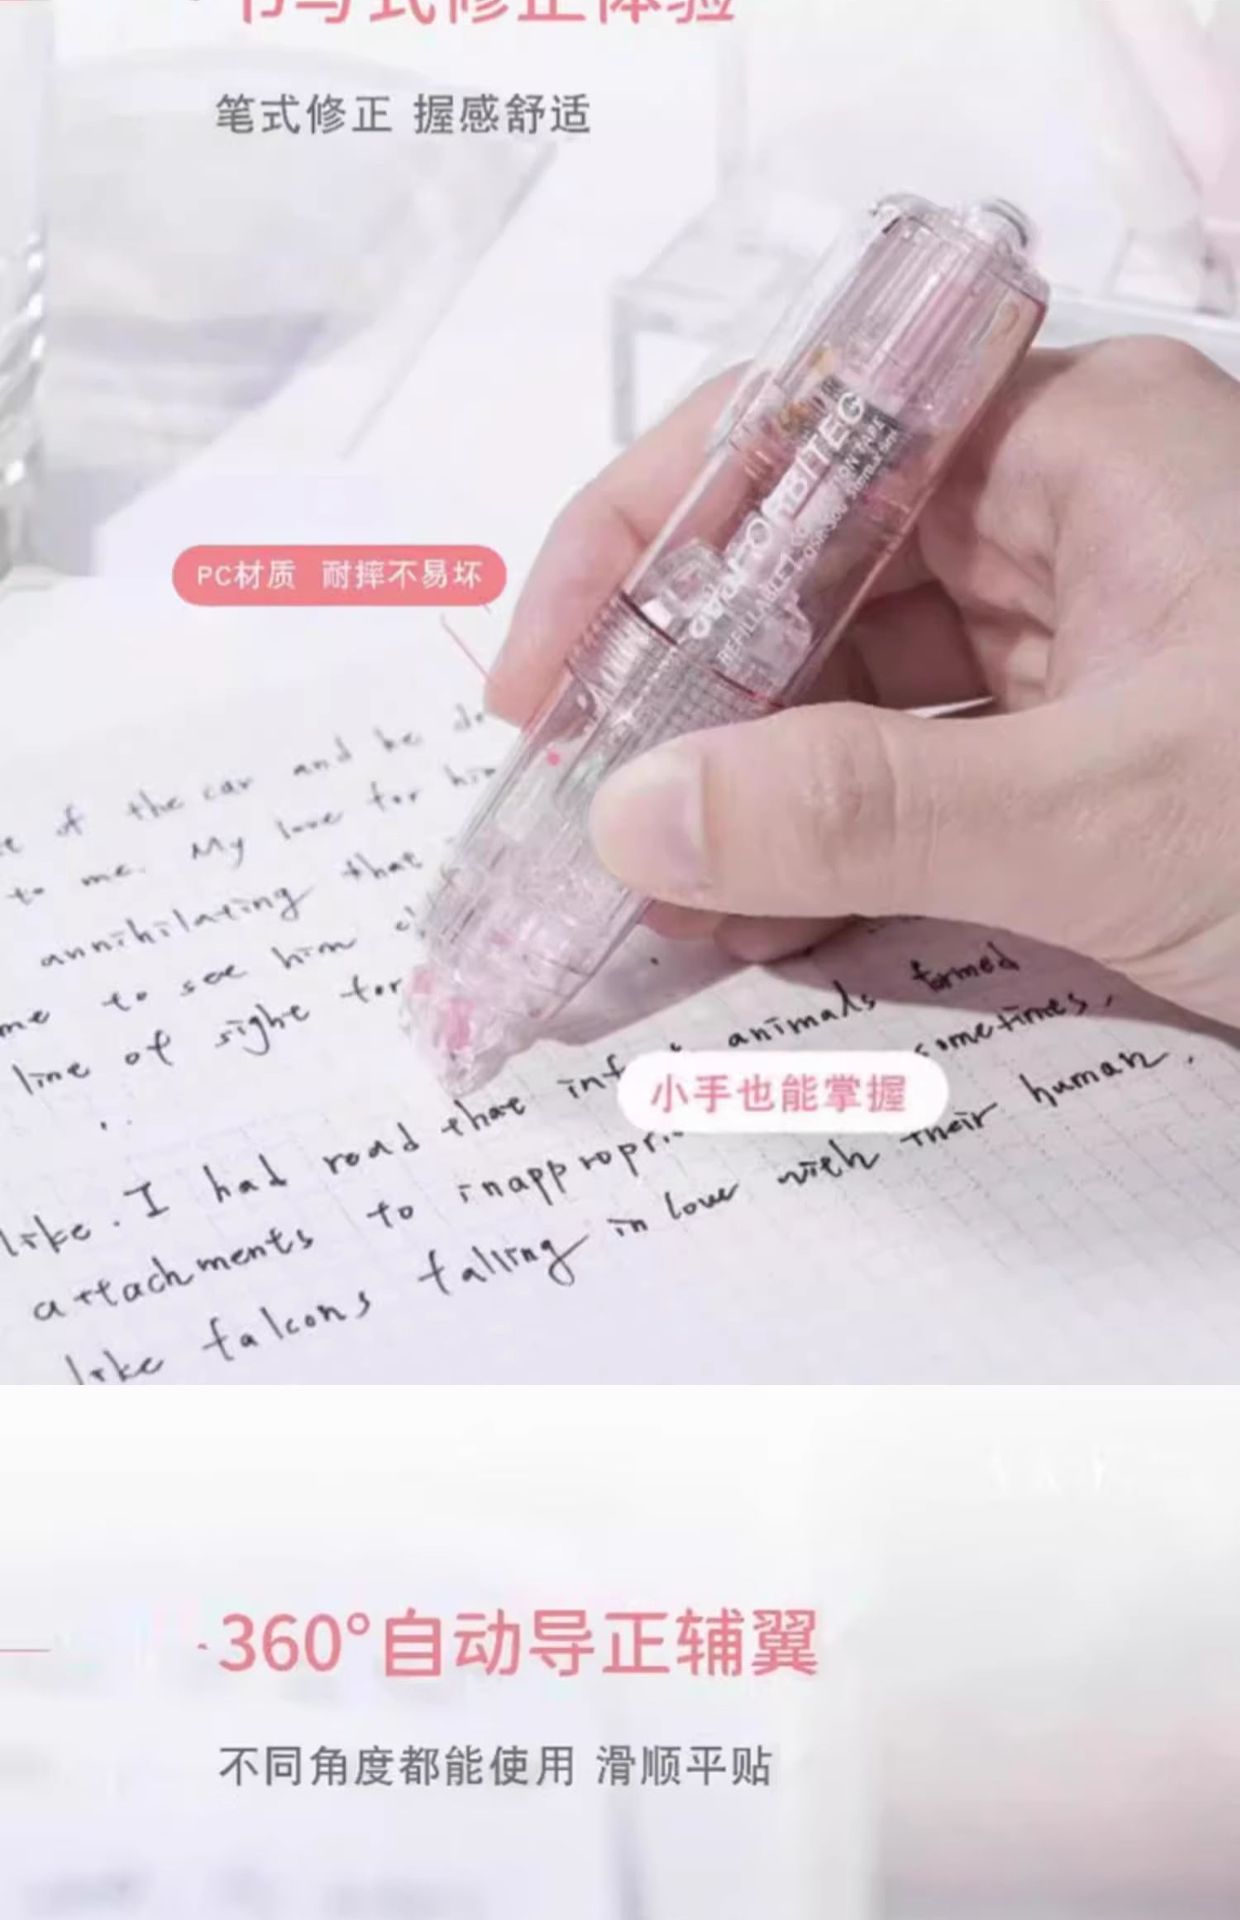 笔式修正 握感舒适
PC材质 耐摔不易坏
of the car and he
to me. My love for him
annihilating that
me to see him
line of sight for
animals formed
小手也能掌握
like. I had read that
sometimes,
attachments to
with their human,
like falcons falling in love
360°自动导正辅翼
不同角度都能使用 滑顺平贴